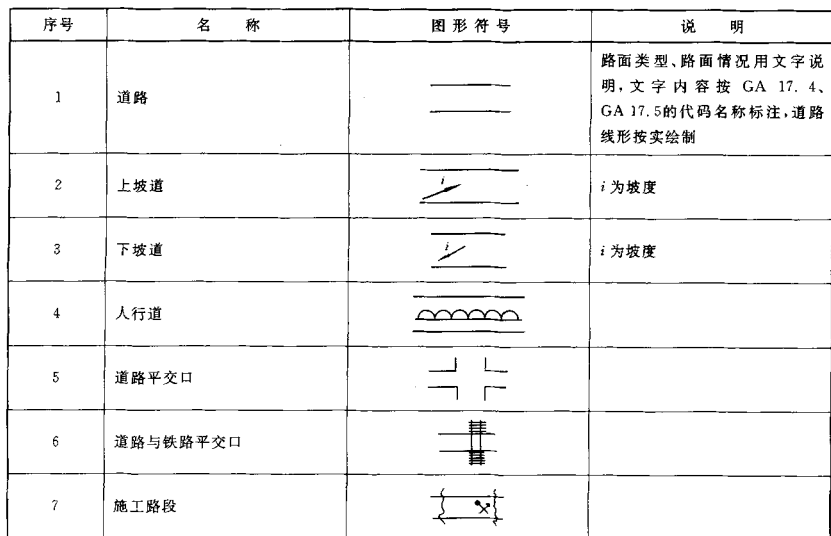 序号 名 称 图形符号 说 明
1 道路 路面类型、路面情况用文字说
明,文字内容按 GA 17.4、
GA 17.5的代码名称标注,道路
线形按实绘制
2 上坡道 i i为坡度
3 下坡道 i i为坡度
4 人行道
5 道路平交口
6 道路与铁路平交口
7 施工路段